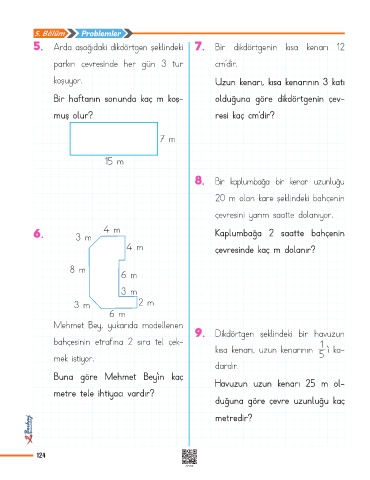 5. Bölüm Problemler
5. Arda aşağıdaki dikdörtgen şeklindeki
parkın çevresinde her gün 3 tur
koşuyor.
Bir haftanın sonunda kaç m koş-
muş olur?
7 m
15 m
6.
4 m
3 m
4 m
8 m
6 m
3 m
3 m
2 m
6 m
Mehmet Bey, yukarıda modellenen
bahçesinin etrafına 2 sıra tel çek-
mek istiyor.
Buna göre Mehmet Bey'in kaç
metre tele ihtiyacı vardır?
7. Bir dikdörtgenin kısa kenarı 12
cm'dir.
Uzun kenarı, kısa kenarının 3 katı
olduğuna göre dikdörtgenin çev-
resi kaç cm'dir?
8. Bir kaplumbağa bir kenar uzunluğu
20 m olan kare şeklindeki bahçenin
çevresini yarım saatte dolanıyor.
Kaplumbağa 2 saatte bahçenin
çevresinde kaç m dolanır?
9. Dikdörtgen şeklindeki bir havuzun
kısa kenarı, uzun kenarının 1/5 'i ka-
dardır.
Havuzun uzun kenarı 25 m ol-
duğuna göre çevre uzunluğu kaç
metredir?
124